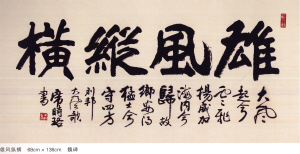 雄風縱橫
大風
起兮
雲飛
揚威加
海內兮
歸故
鄉安得
猛士兮
守四方
刘邦
大風歌
書
雄风纵横 69cm × 138cm 魏碑